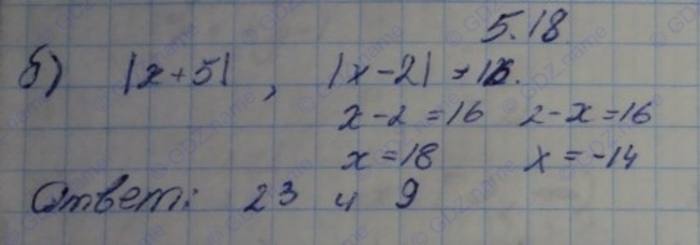 5.18
б) |x+5|, |x-2| = 16.
x-2=16 2-x=16
x=18 x=-14
Ответ: 23 и 9